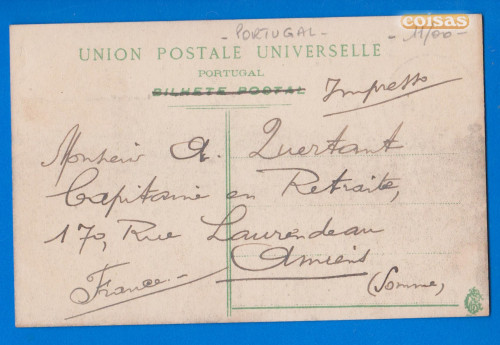 - PORTUGAL -
- 11/00 -
coisas
UNION POSTALE UNIVERSELLE
PORTUGAL
BILHETE POSTAL
Impresso
Monsieur A. Quertant
Capitaine en Retraite,
170, Rue Laurendeau
Amiens
(Somme)
France